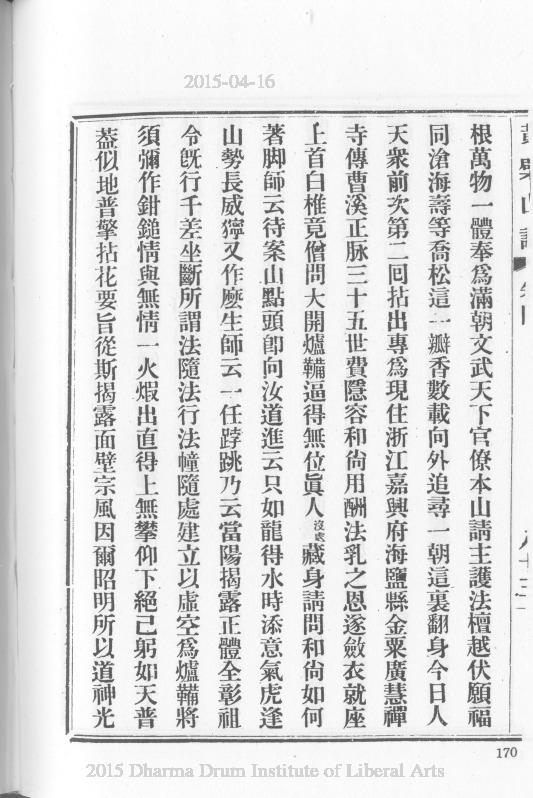 2015-04-16
根萬物一體奉爲滿朝文武天下官僚本山請主護法檀越伏願福
同滄海壽等喬松這一瓣香數載向外追尋一朝這裏翻身今日人
天衆前次第二回拈出專爲現住浙江嘉興府海鹽縣金粟廣慧禪
寺傳曹溪正脉三十五世費隱容和尙用酬法乳之恩遂斂衣就座
上首白椎竟僧問大開爐鞴逼得無位眞人沒處藏身請問和尙如何
著脚師云待案山點頭卽向汝道進云只如龍得水時添意氣虎逢
山勢長威獰又作麽生師云一任踍跳乃云當陽揭露正體全彰祖
令旣行千差坐斷所謂法隨法行法幢隨處建立以虛空爲爐鞴將
須彌作鉗鎚情與無情一火煆出直得上無攀仰下絕己躬如天普
葢似地普擎拈花要旨從斯揭露面壁宗風因爾昭明所以道神光
170
2015 Dharma Drum Institute of Liberal Arts